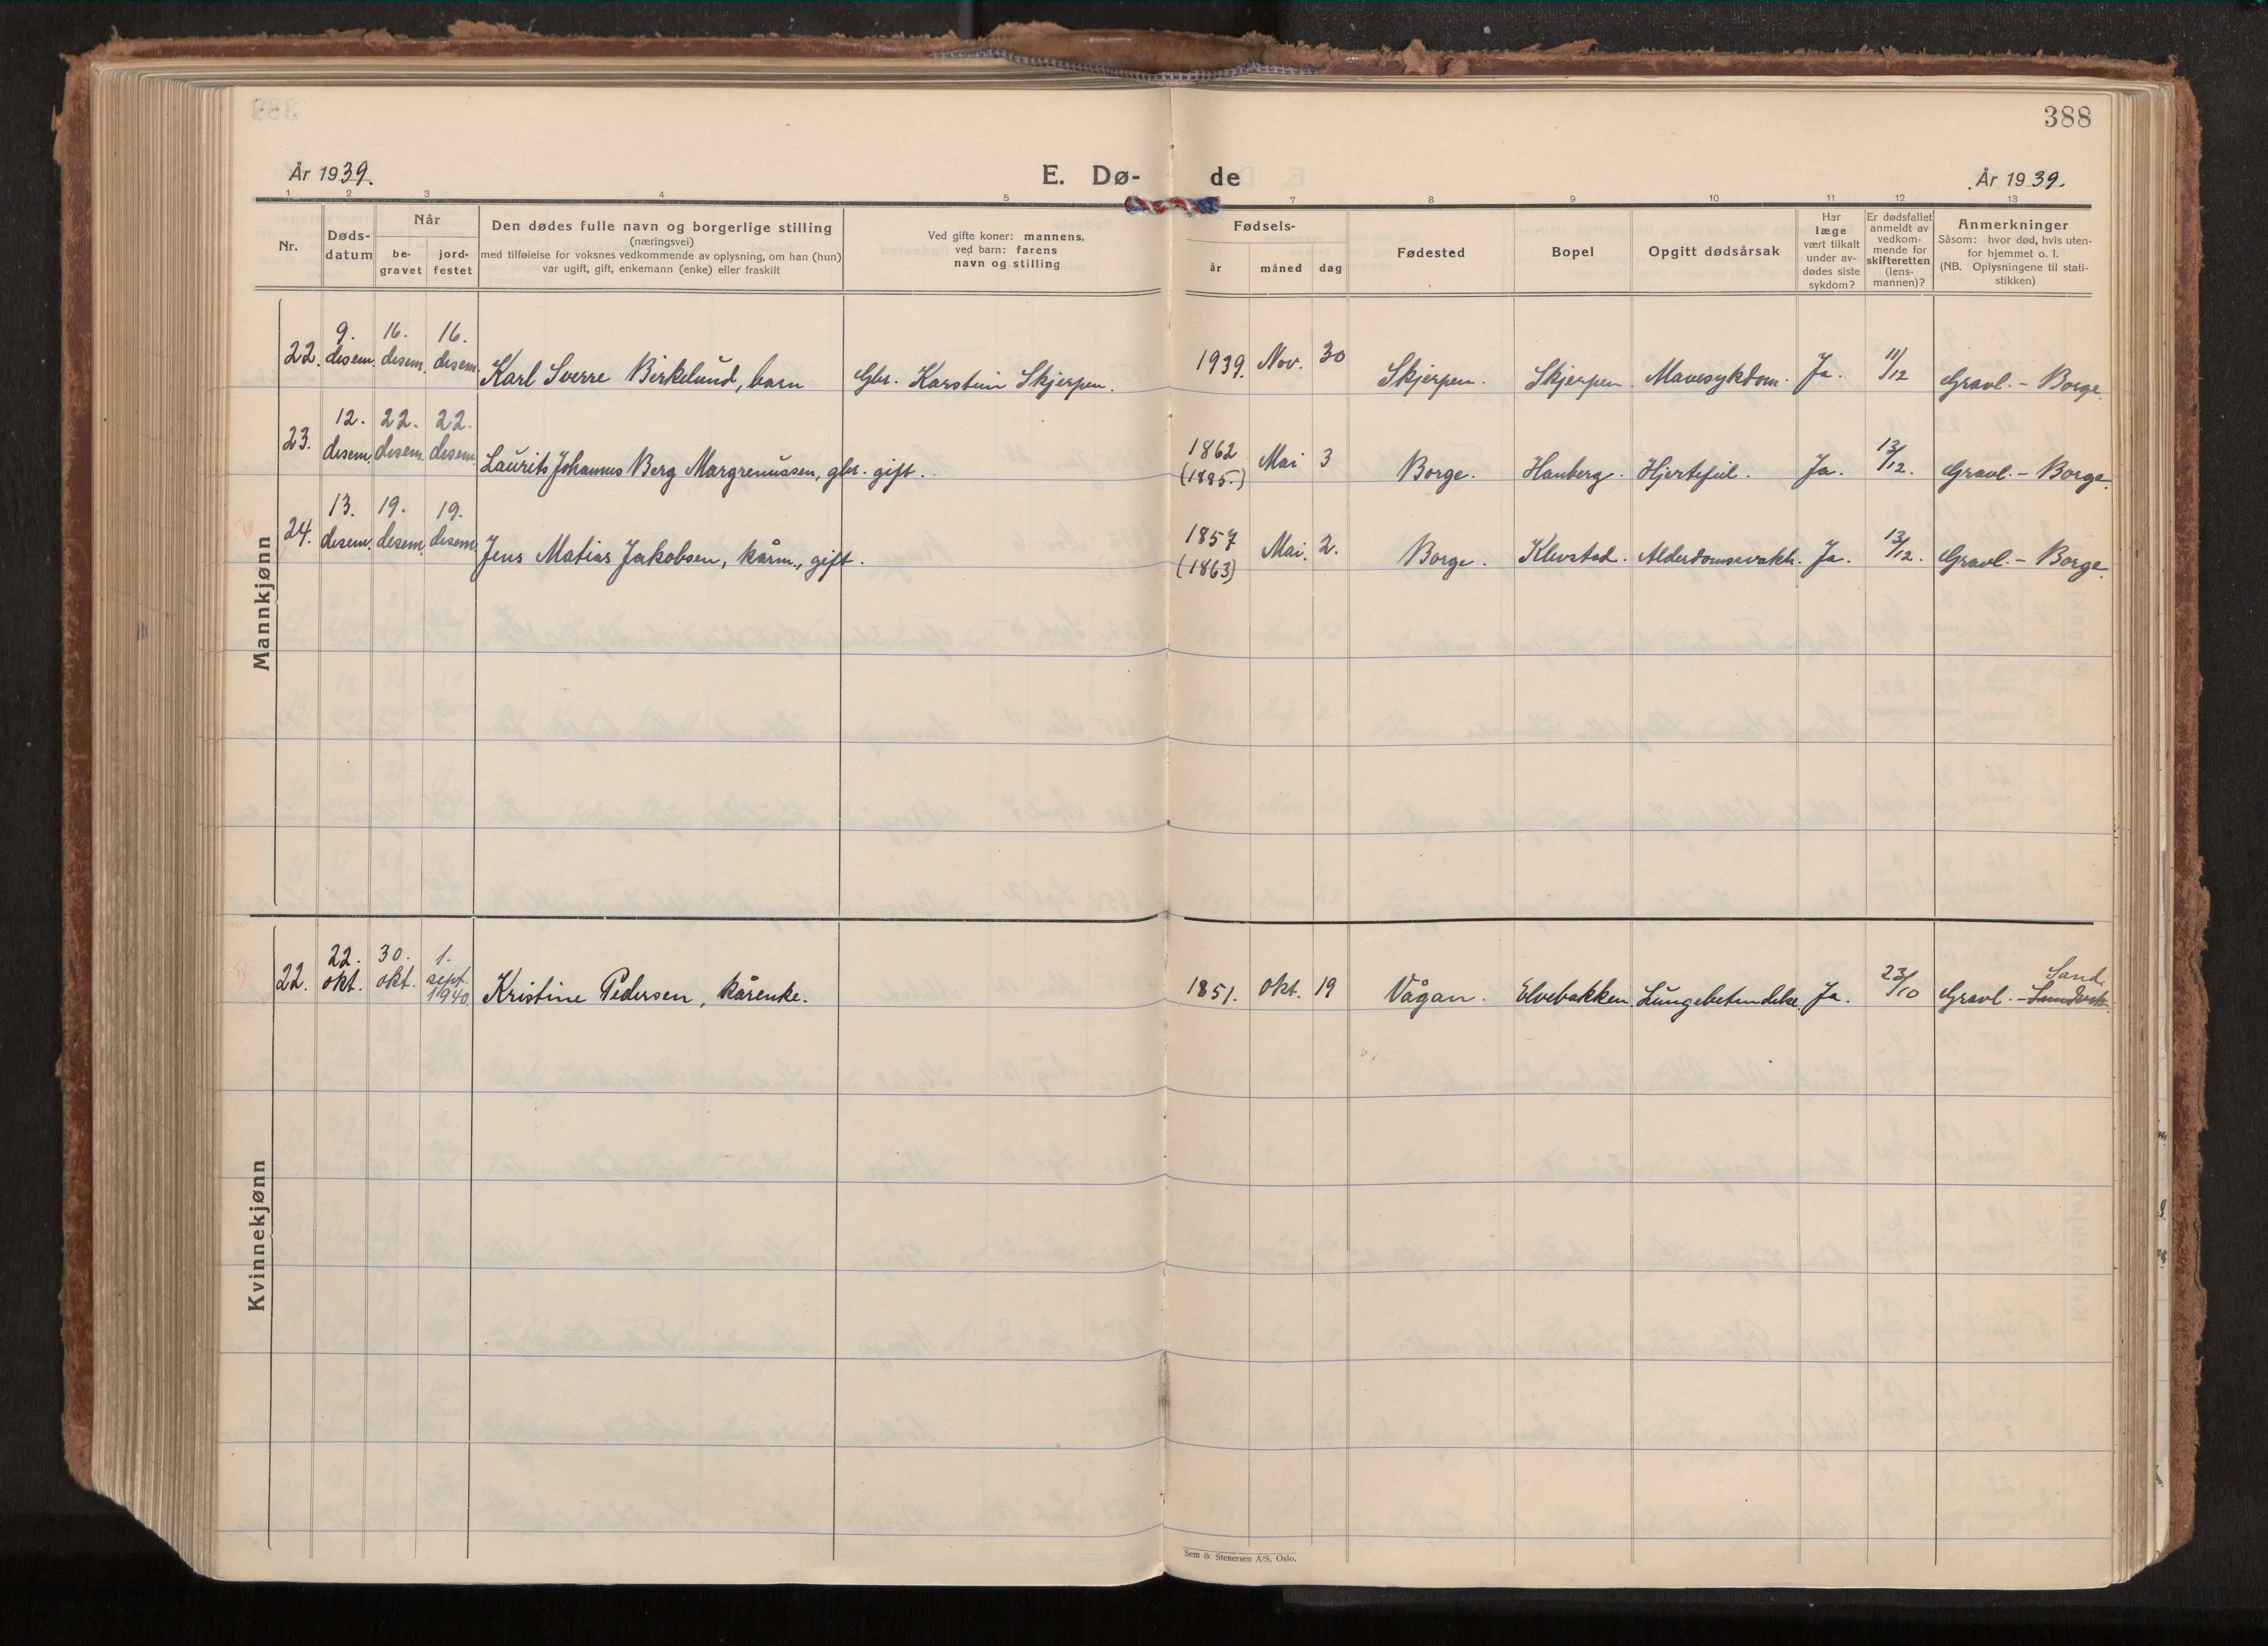 388
År 1939.
E. Dø- de
År 1939.
1 2 3 4 5 7 8 9 10 11 12 13
Nr.
Døds-
datum
Når
be-
gravet
jord-
festet
Den dødes fulle navn og borgerlige stilling
(næringsvei)
med tilføielse for voksnes vedkommende av oplysning, om han (hun)
var ugift, gift, enkemann (enke) eller fraskilt
Ved gifte koner: mannens,
ved barn: farens
navn og stilling
Fødsels-
år måned dag
Fødested
Bopel
Opgitt dødsårsak
Har
læge
vært tilkalt
under av-
dødes siste
sykdom?
Er dødsfallet
anmeldt av
vedkom-
mende for
skifteretten
(lens-
mannen)?
Anmerkninger
Såsom: hvor død, hvis uten-
for hjemmet o. l.
(NB. Oplysningene til stati-
stikken)
Mannkjønn
22. 9. desem. 16. desem. 16. desem. Karl Sverre Birkelund, barn Gbr. Karstein Skjerpen. 1939. Nov. 30 Skjerpen. Skjerpen. Mavesykdom. Ja. 11/12 Gravl. - Borge.
23. 12. desem. 22. desem. 22. desem. Laurits Johannes Berg Margrenussen, gbr. gift. 1862 (1885.) Mai 3 Borge. Hanberg. Hjertefeil. Ja. 13/12. Gravl. - Borge.
24. 13. desem. 19. desem. 19. desem. Jens Matias Jakobsen, kårm., gift. 1857 (1863) Mai. 2. Borge. Klevstad. Alderdomssvakh. Ja. 13/12. Gravl. - Borge.
Kvinnekjønn
22. 22. okt. 30. okt. 1. sept. 1940 Kristine Pedersen, kårenke. 1851. Okt. 19 Vågan. Elvebakken. Lungebetendelse. Ja. 23/10 Gravl. - Sand.
Sem & Stenersen A/S, Oslo.